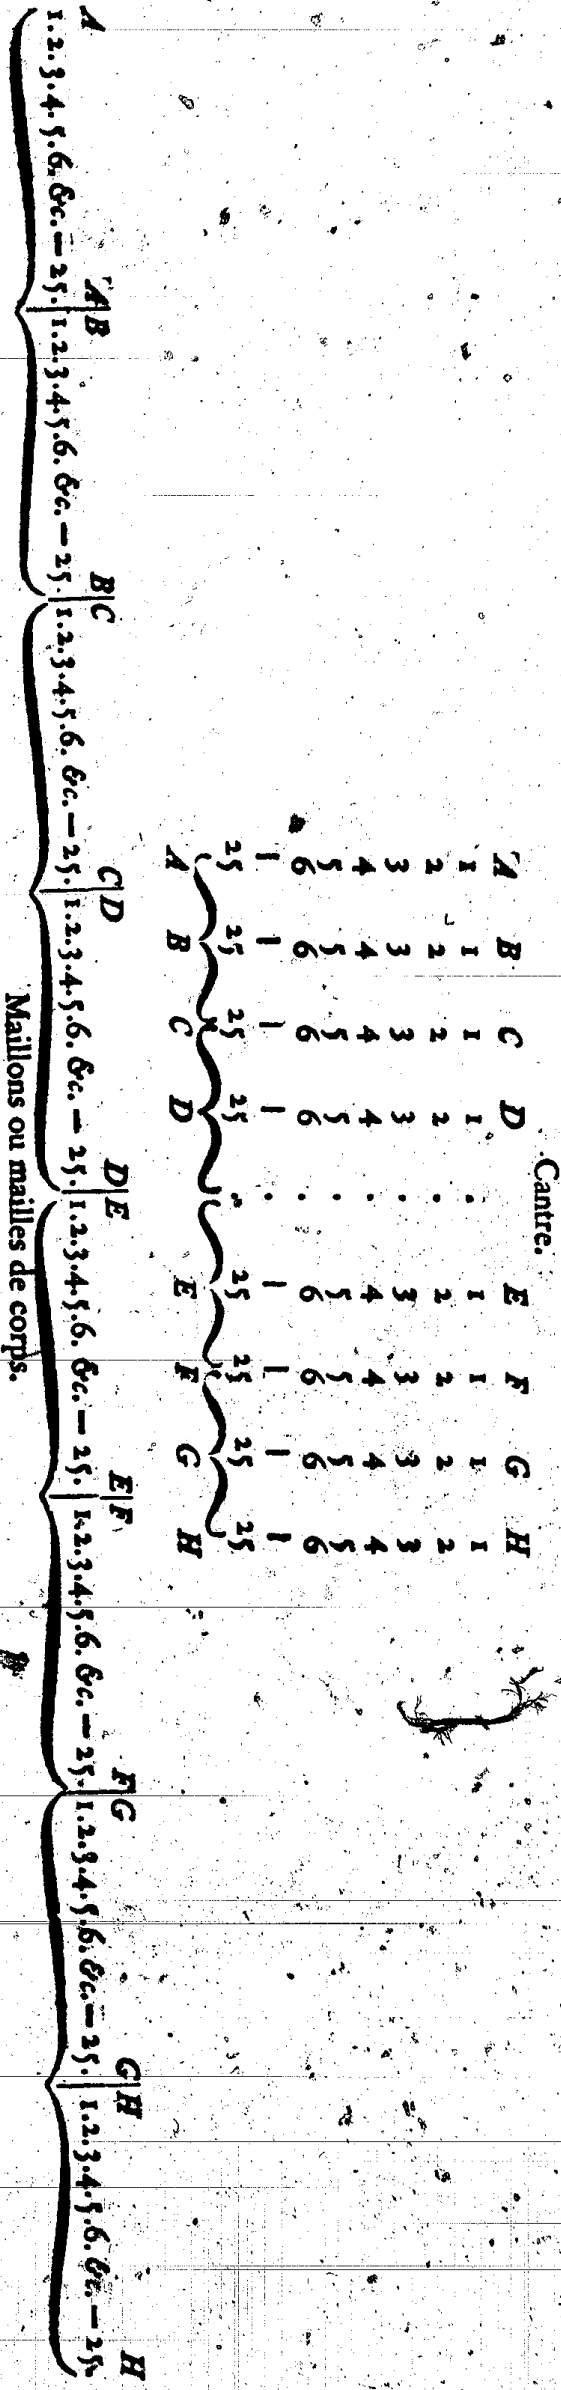 Cantre.
A B C D E F G H
1 1 1 1 . 1 1 1 1
2 2 2 2 . 2 2 2 2
3 3 3 3 . 3 3 3 3
4 4 4 4 . 4 4 4 4
5 5 5 5 . 5 5 5 5
6 6 6 6 . 6 6 6 6
| | | | . | | | |
25 25 25 25 . 25 25 25 25
A B C D E F G H
A A|B B|C C|D D|E E|F F|G G|H H
1.2.3.4.5.6. &c. — 25.|1.2.3.4.5.6. &c. — 25.|1.2.3.4.5.6. &c. — 25.|1.2.3.4.5.6. &c. — 25.|1.2.3.4.5.6. &c. — 25.|1.2.3.4.5.6. &c. — 25.|1.2.3.4.5.6. &c. — 25.|1.2.3.4.5.6. &c. — 25.
Maillons ou mailles de corps.